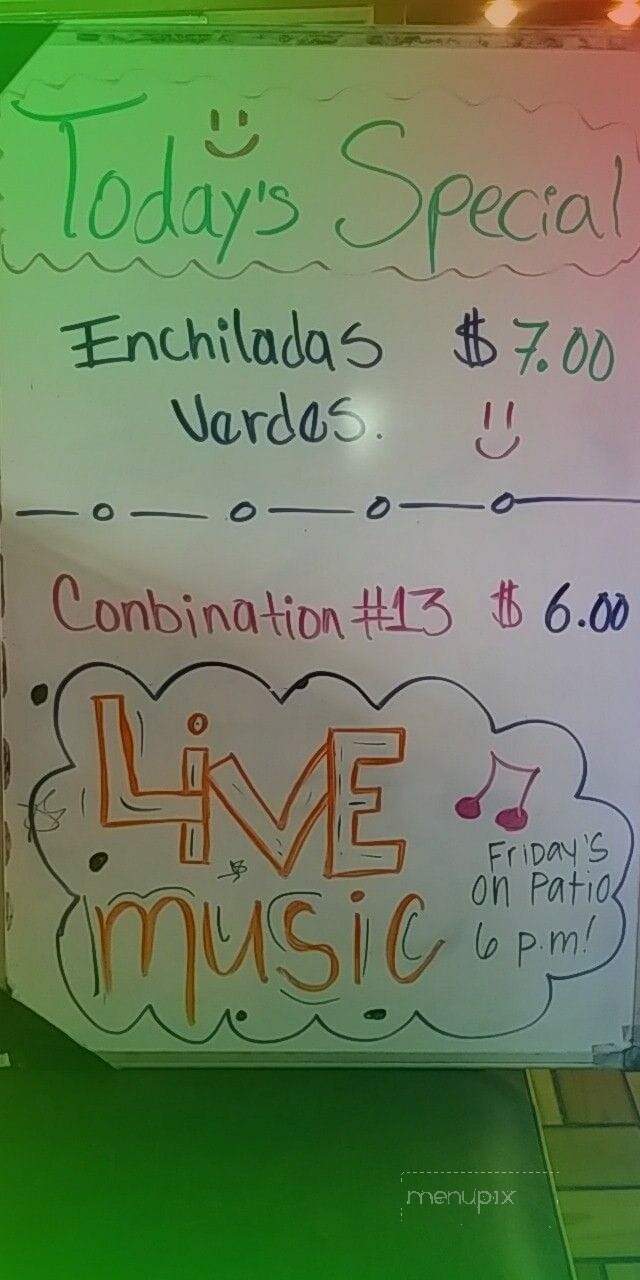 Today's Special
Enchiladas $7.00
Verdes.
Conbination #13 $6.00
LiVE
music
FRiDAY'S
on Patio
6 p.m!
menupix